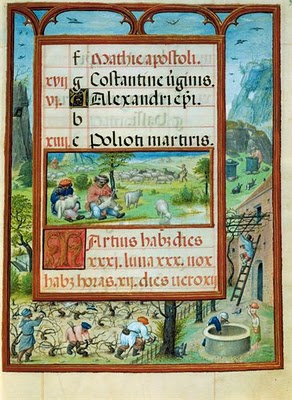 f Mathie apostoli.
xvii g Costantine uginis.
vi. A Alexandri epi.
b
xiiii c Polioti martiris.
Martius habz dies
xxxi. luna xxx. nox
habz horas. xii. dies uero xii